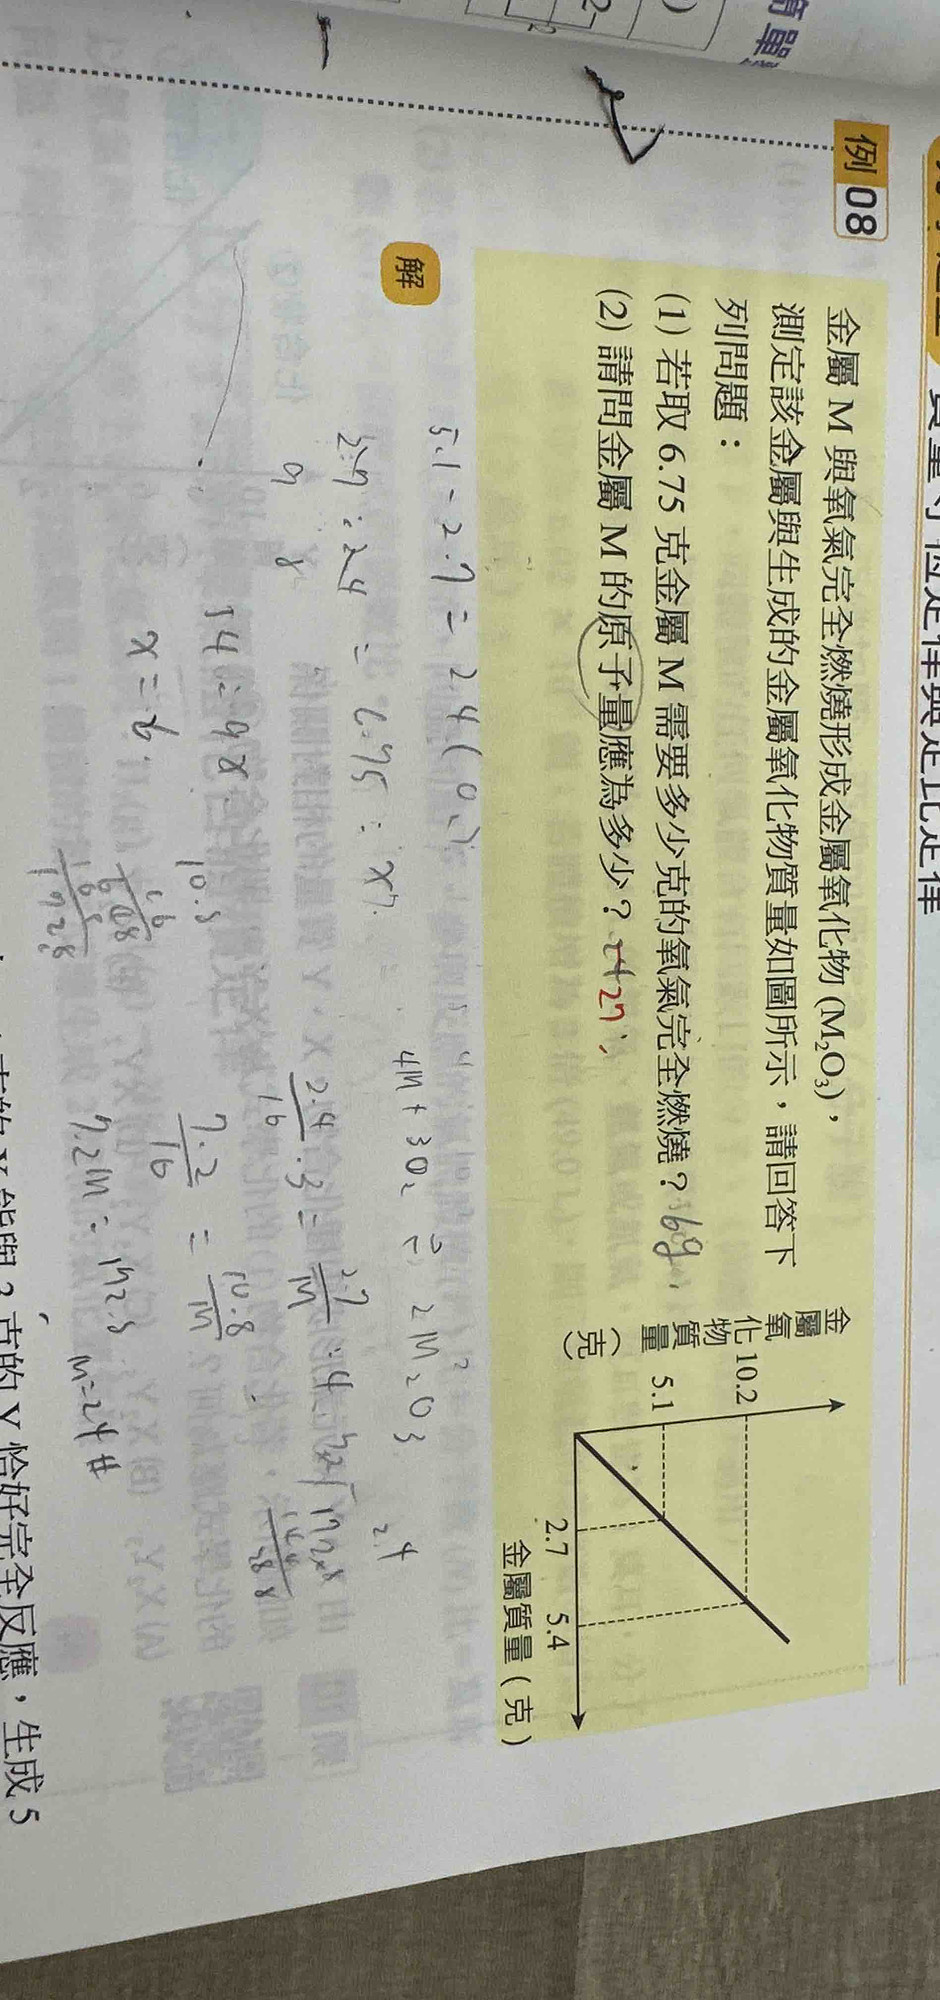 質量守恆定律與定比定律
例 08
金屬 M 與氧氣完全燃燒形成金屬氧化物 (M₂O₃)，
測定該金屬與生成的金屬氧化物質量如圖所示，請回答下
列問題：
(1) 若取 6.75 克金屬 M 需要多少克的氧氣完全燃燒？ 6g
(2) 請問金屬 M 的原子量應為多少？ 24 27
金屬氧化物質量（克）
10.2
5.1
2.7 5.4
金屬質量（克）
解
5.1 - 2.7 = 2.4 (O₂)
2.7 : 2.4 = 6.75 : x
9 8
54 = 9x
x = 6
4M + 3O₂ ⇒ 2M₂O₃
2.4
2.4/16 · 3 = 2.7/M · 4
7.2/16 = 10.8/M
10.8
7.2M = 172.8
M = 24 #
克的 X 能與 3 克的 Y 恰好完全反應，生成 5